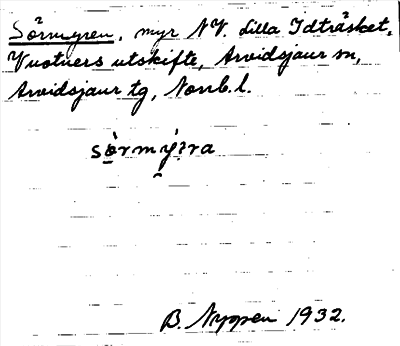 Sörmyren, myr NV. Lilla Idträsket,
Vuotners utskifte, Arvidsjaur sn,
Arvidsjaur tg, Norrb. l.
B. Nyppen 1932.